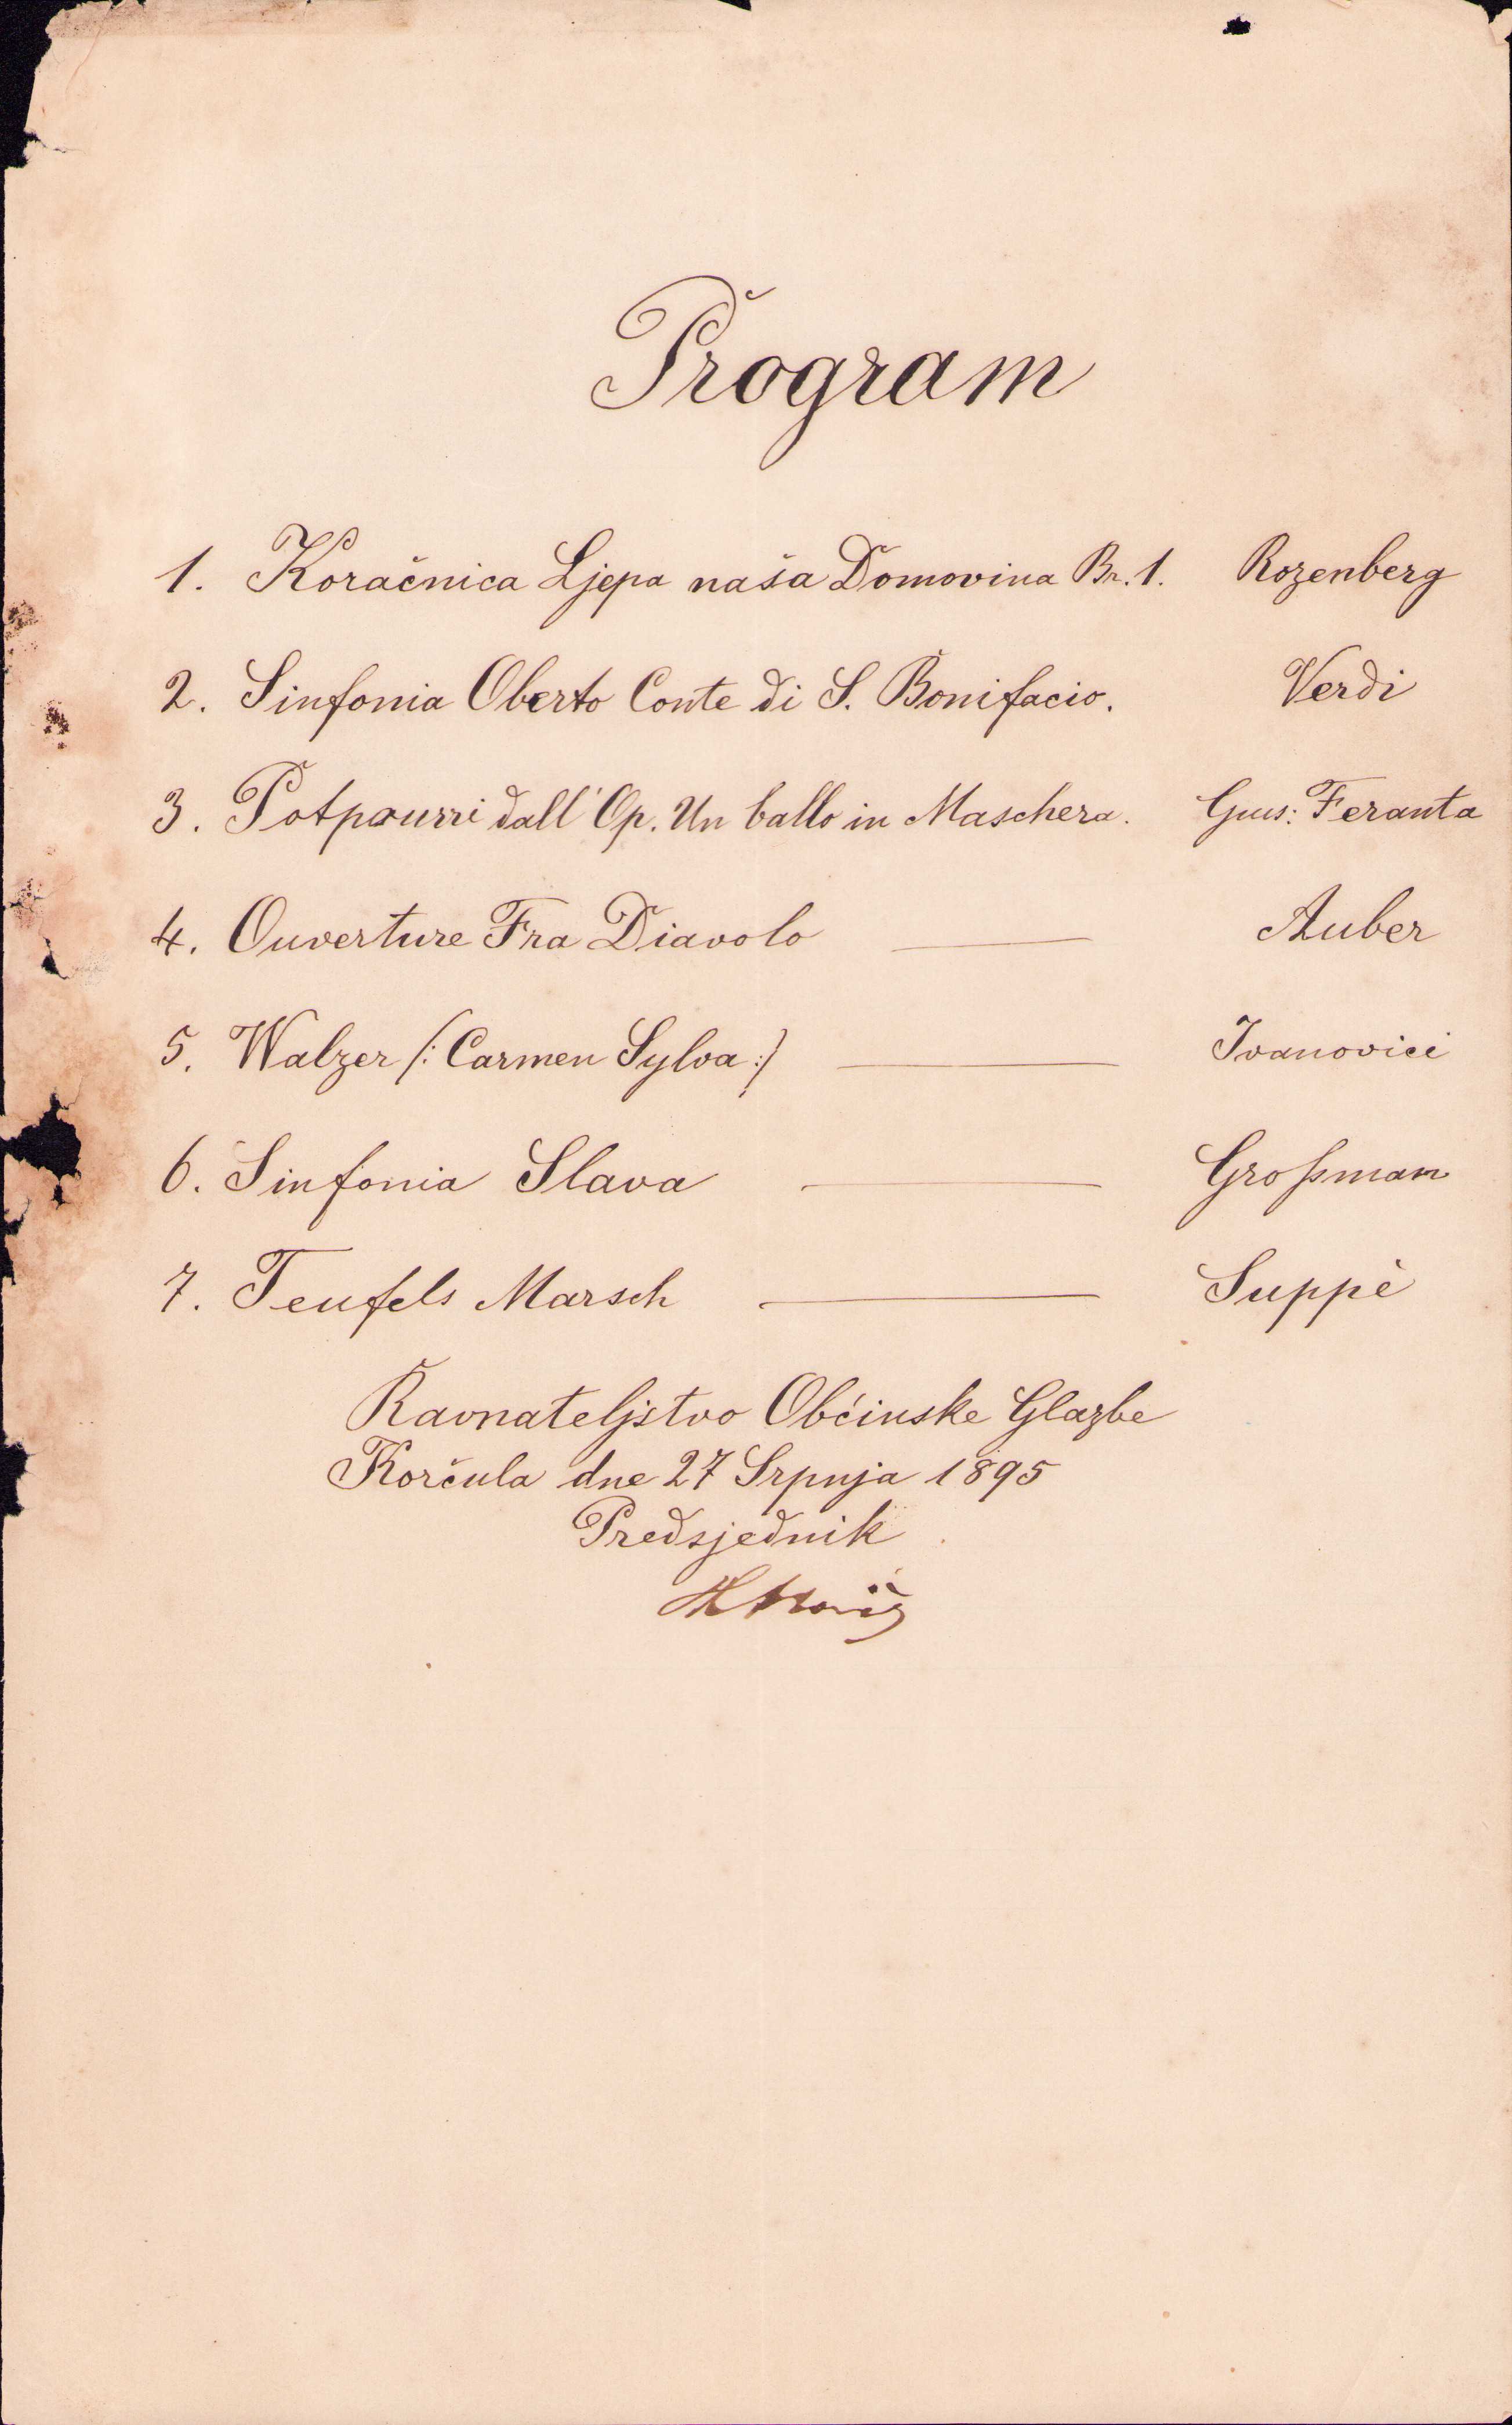 Program
1. Koračnica Ljepa naša Domovina Br. 1. Rozenberg
2. Sinfonia Oberto Conte di S. Bonifacio. Verdi
3. Potpourri dall' Op. Un ballo in Maschera. Gius: Feranta
4. Ouverture Fra Diavolo — Auber
5. Walzer /: Carmen Sylva :/ — Ivanovici
6. Sinfonia Slava — Großman
7. Teufels Marsch — Suppè
Ravnateljstvo Občinske Glazbe
Korčula dne 27 Srpnja 1895
Predsjednik